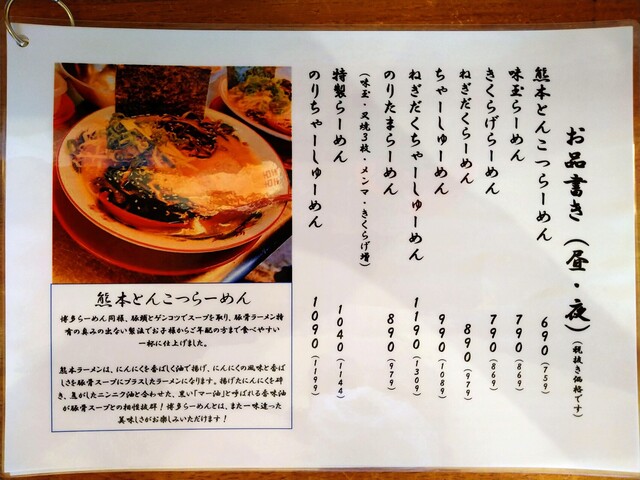 お品書き（昼・夜）（税抜き価格です）
熊本とんこつらーめん 690（759）
味玉らーめん 790（869）
きくらげらーめん 790（869）
ねぎだくらーめん 890（979）
ちゃーしゅーめん 990（1089）
ねぎだくちゃーしゅーめん 1190（1309）
のりたまらーめん 890（979）
（味玉・叉焼3枚・メンマ・きくらげ増）
特製らーめん 1040（1144）
のりちゃーしゅーめん 1090（1199）
熊本とんこつらーめん
博多らーめん同様、豚頭とゲンコツでスープを取り、豚骨ラーメン特
有の臭みの出ない製法でお子様からご年配の方まで食べやすい
一杯に仕上げました。
熊本ラーメンは、にんにくを香ばしく油で揚げ、にんにくの風味と香ば
しさを豚骨スープにプラスしたラーメンになります。揚げたにんにくを砕
き、焦がしたニンニク油と合わせた、黒い「マー油」と呼ばれる香味油
が豚骨スープとの相性抜群！博多らーめんとは、また一味違った
美味しさがお楽しみいただけます！